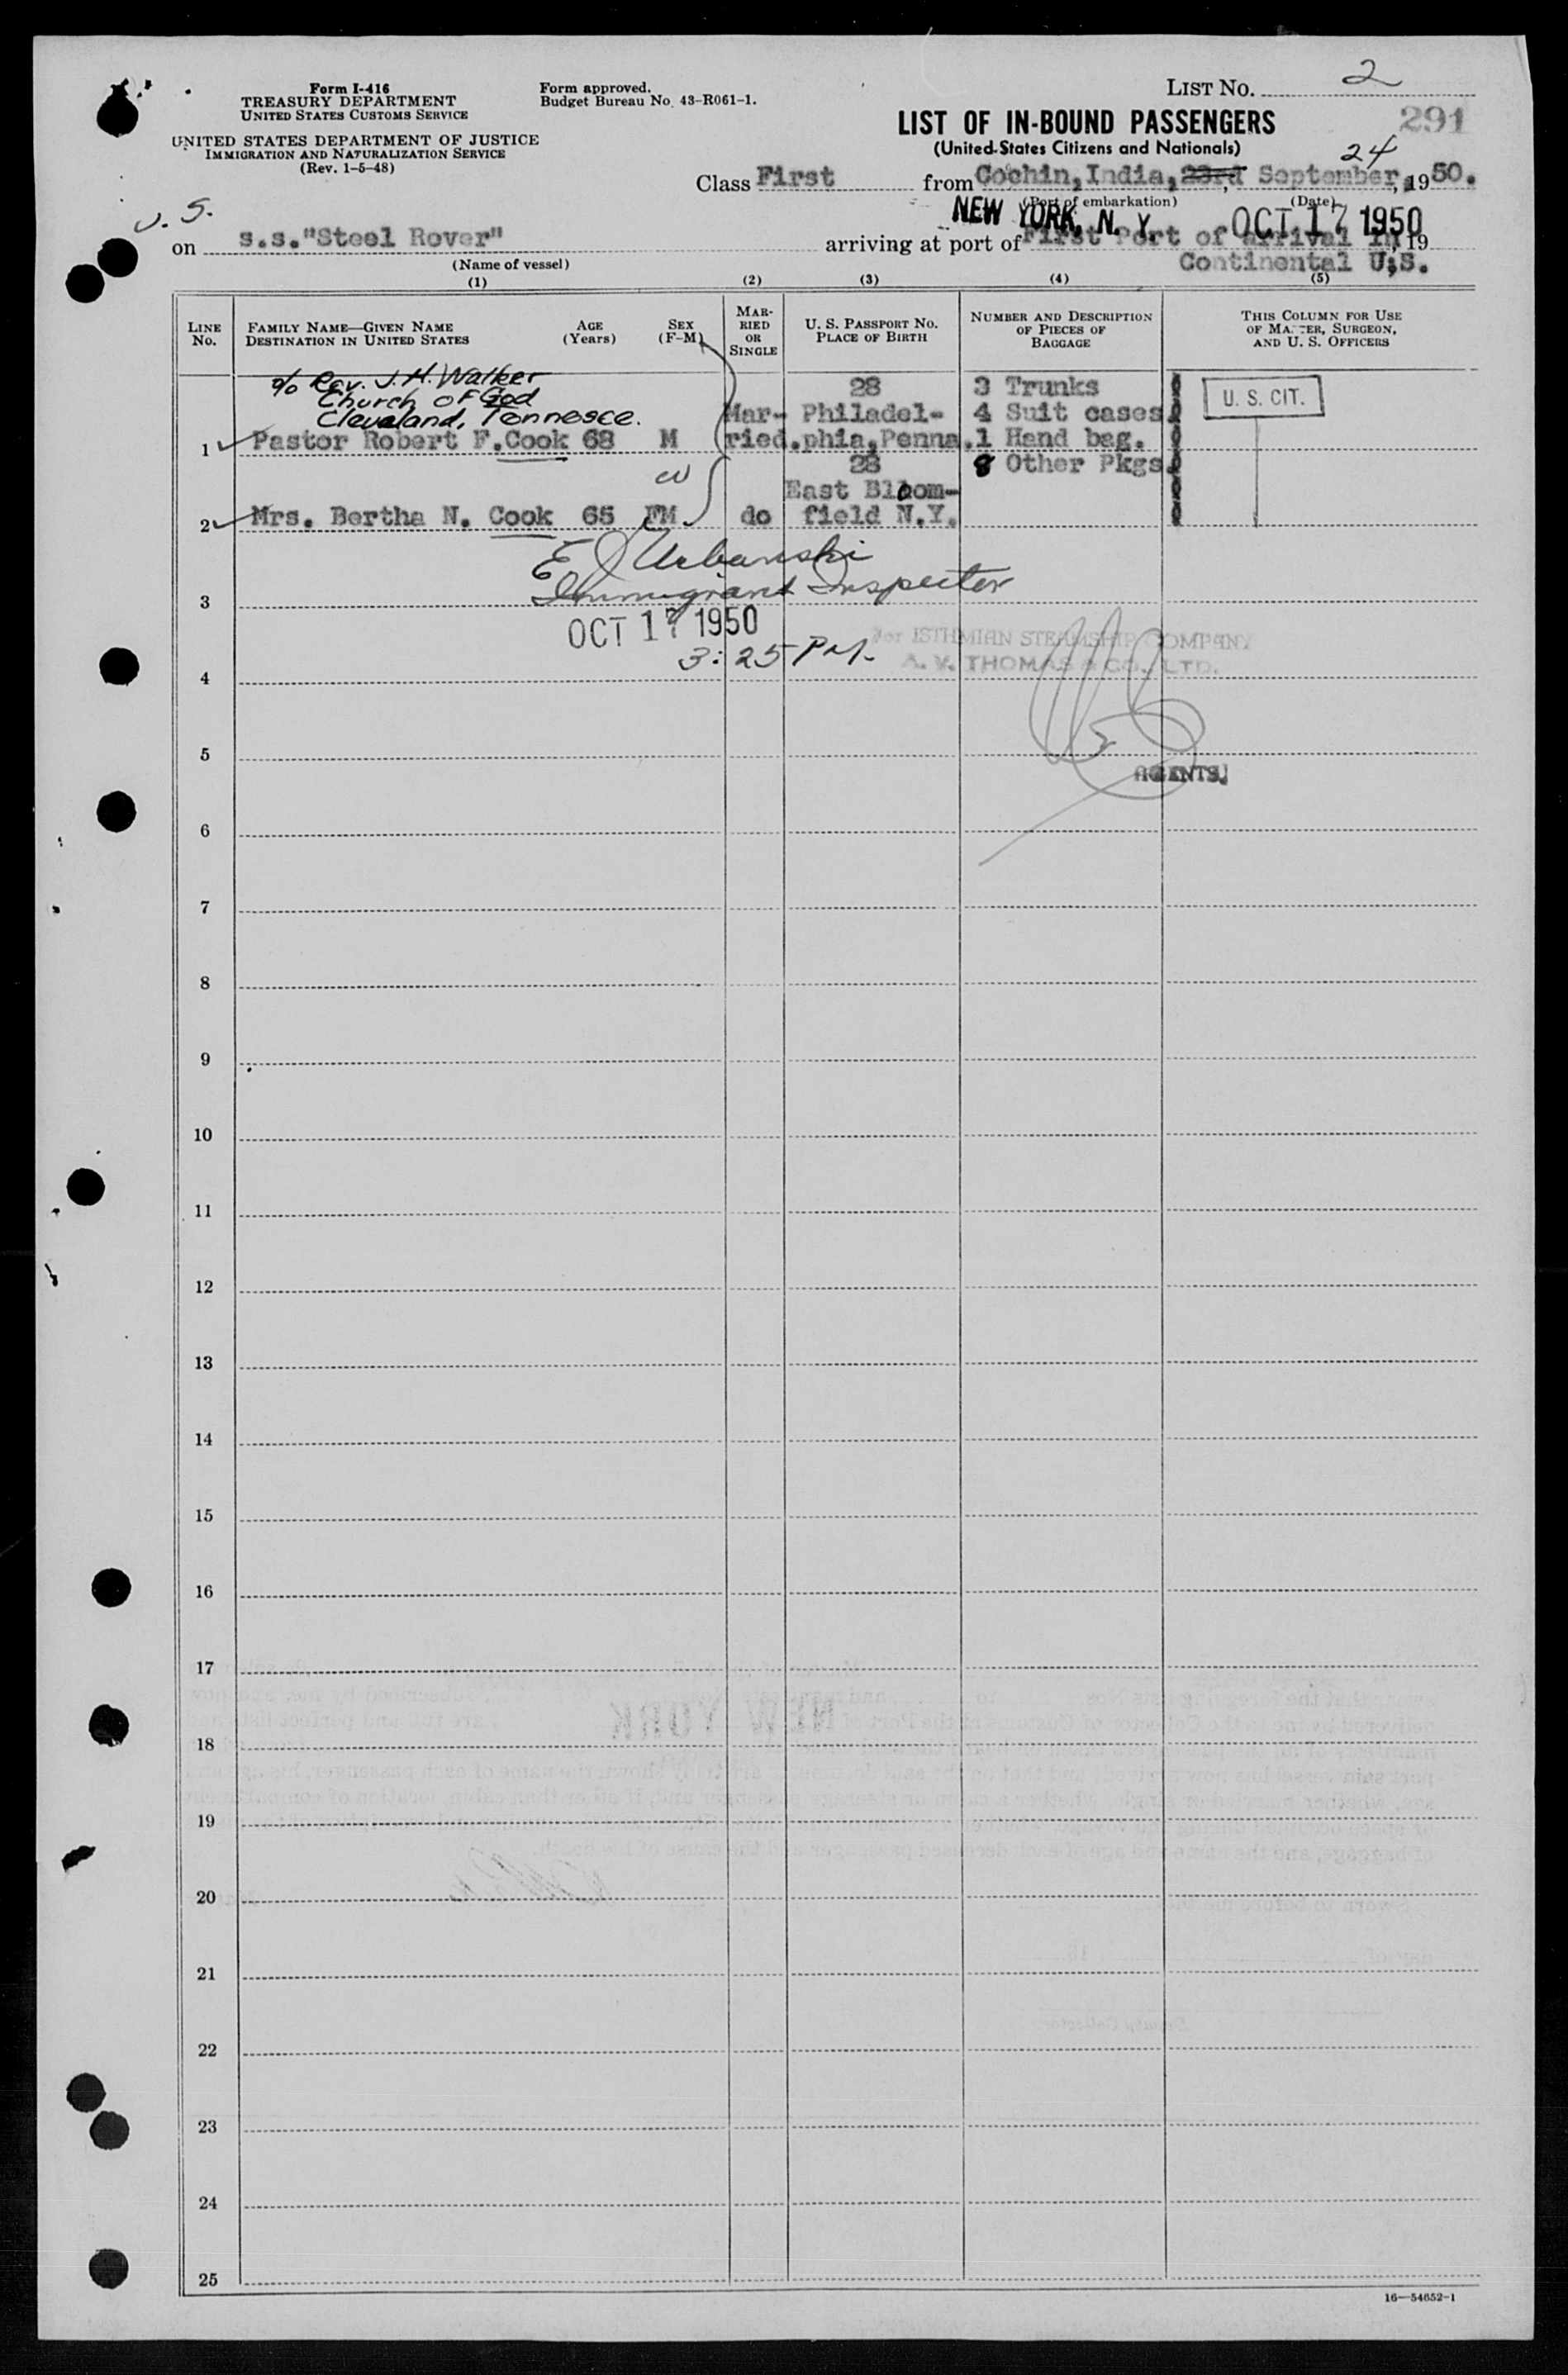 Form I-416
TREASURY DEPARTMENT
UNITED STATES CUSTOMS SERVICE
UNITED STATES DEPARTMENT OF JUSTICE
IMMIGRATION AND NATURALIZATION SERVICE
(Rev. 1-5-48)
Form approved.
Budget Bureau No. 43-R061-1.
LIST No. 2
291
LIST OF IN-BOUND PASSENGERS
(United States Citizens and Nationals)
24
Class First from Cochin, India, 23rd September, 1950.
(Port of embarkation) (Date)
NEW YORK, N. Y. OCT 17 1950
U. S.
on s.s."Steel Rover" arriving at port of First Port of arrival in, 19
(Name of vessel) Continental U.S.
(1) (2) (3) (4) (5)
LINE No.
FAMILY NAME—GIVEN NAME
DESTINATION IN UNITED STATES
AGE (Years)
SEX (F-M)
MARRIED OR SINGLE
U. S. PASSPORT No.
PLACE OF BIRTH
NUMBER AND DESCRIPTION
OF PIECES OF
BAGGAGE
THIS COLUMN FOR USE
OF MASTER, SURGEON,
AND U. S. OFFICERS
c/o Rev. J. H. Walker 28 3 Trunks
Church of God Mar- Philadel- 4 Suit cases U. S. CIT.
Cleveland, Tennesee.
1 Pastor Robert F. Cook 68 M ried. phia, Penna. 1 Hand bag.
28 8 Other Pkgs
W East Bloom-
2 Mrs. Bertha N. Cook 65 FM do field N.Y.
E J Urbanski
Immigrant Inspector
3
OCT 17 1950
For ISTHMIAN STEAMSHIP COMPANY
3:25 PM.
A. V. THOMAS & CO., LTD.
4
5
AGENTS.
6
7
8
9
10
11
12
13
14
15
16
17
NEW YORK
18
19
20
21
22
23
24
25
16—54652-1